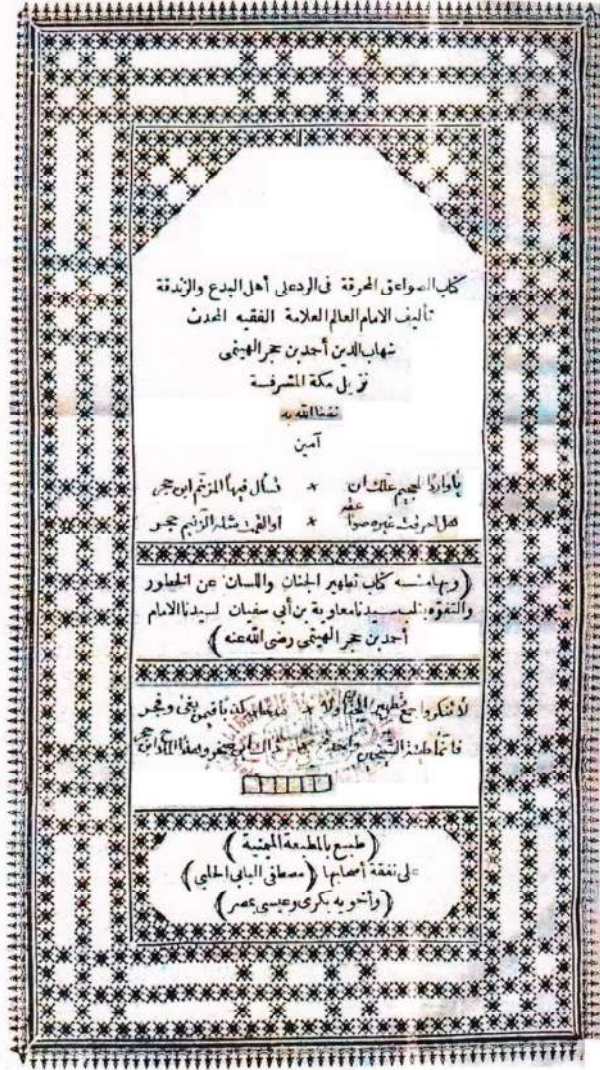 كتاب الصواعق المحرقة فى الرد على أهل البدع والزندقة
تأليف الامام العالم العلامة الفقيه المحدث
شهاب الدين أحمد بن حجر الهيتمى
نزيل مكة المشرفة
نفعنا الله به
آمين
× تسأل فيها ابن حجر
هل غيره × او
(وبهامشه كتاب تطهير الجنان واللسان عن الخطور
والتفوّه بثلب سيدنا معاوية بن أبى سفيان لسيدنا الامام
أحمد بن حجر الهيتمى رضى الله عنه)
لا تنكروا تطهير
(طبع بالمطبعة الميمنية)
على نفقة أصحابها (مصطفى البابى الحلبى)
(وأخويه بكرى وعيسى بمصر)